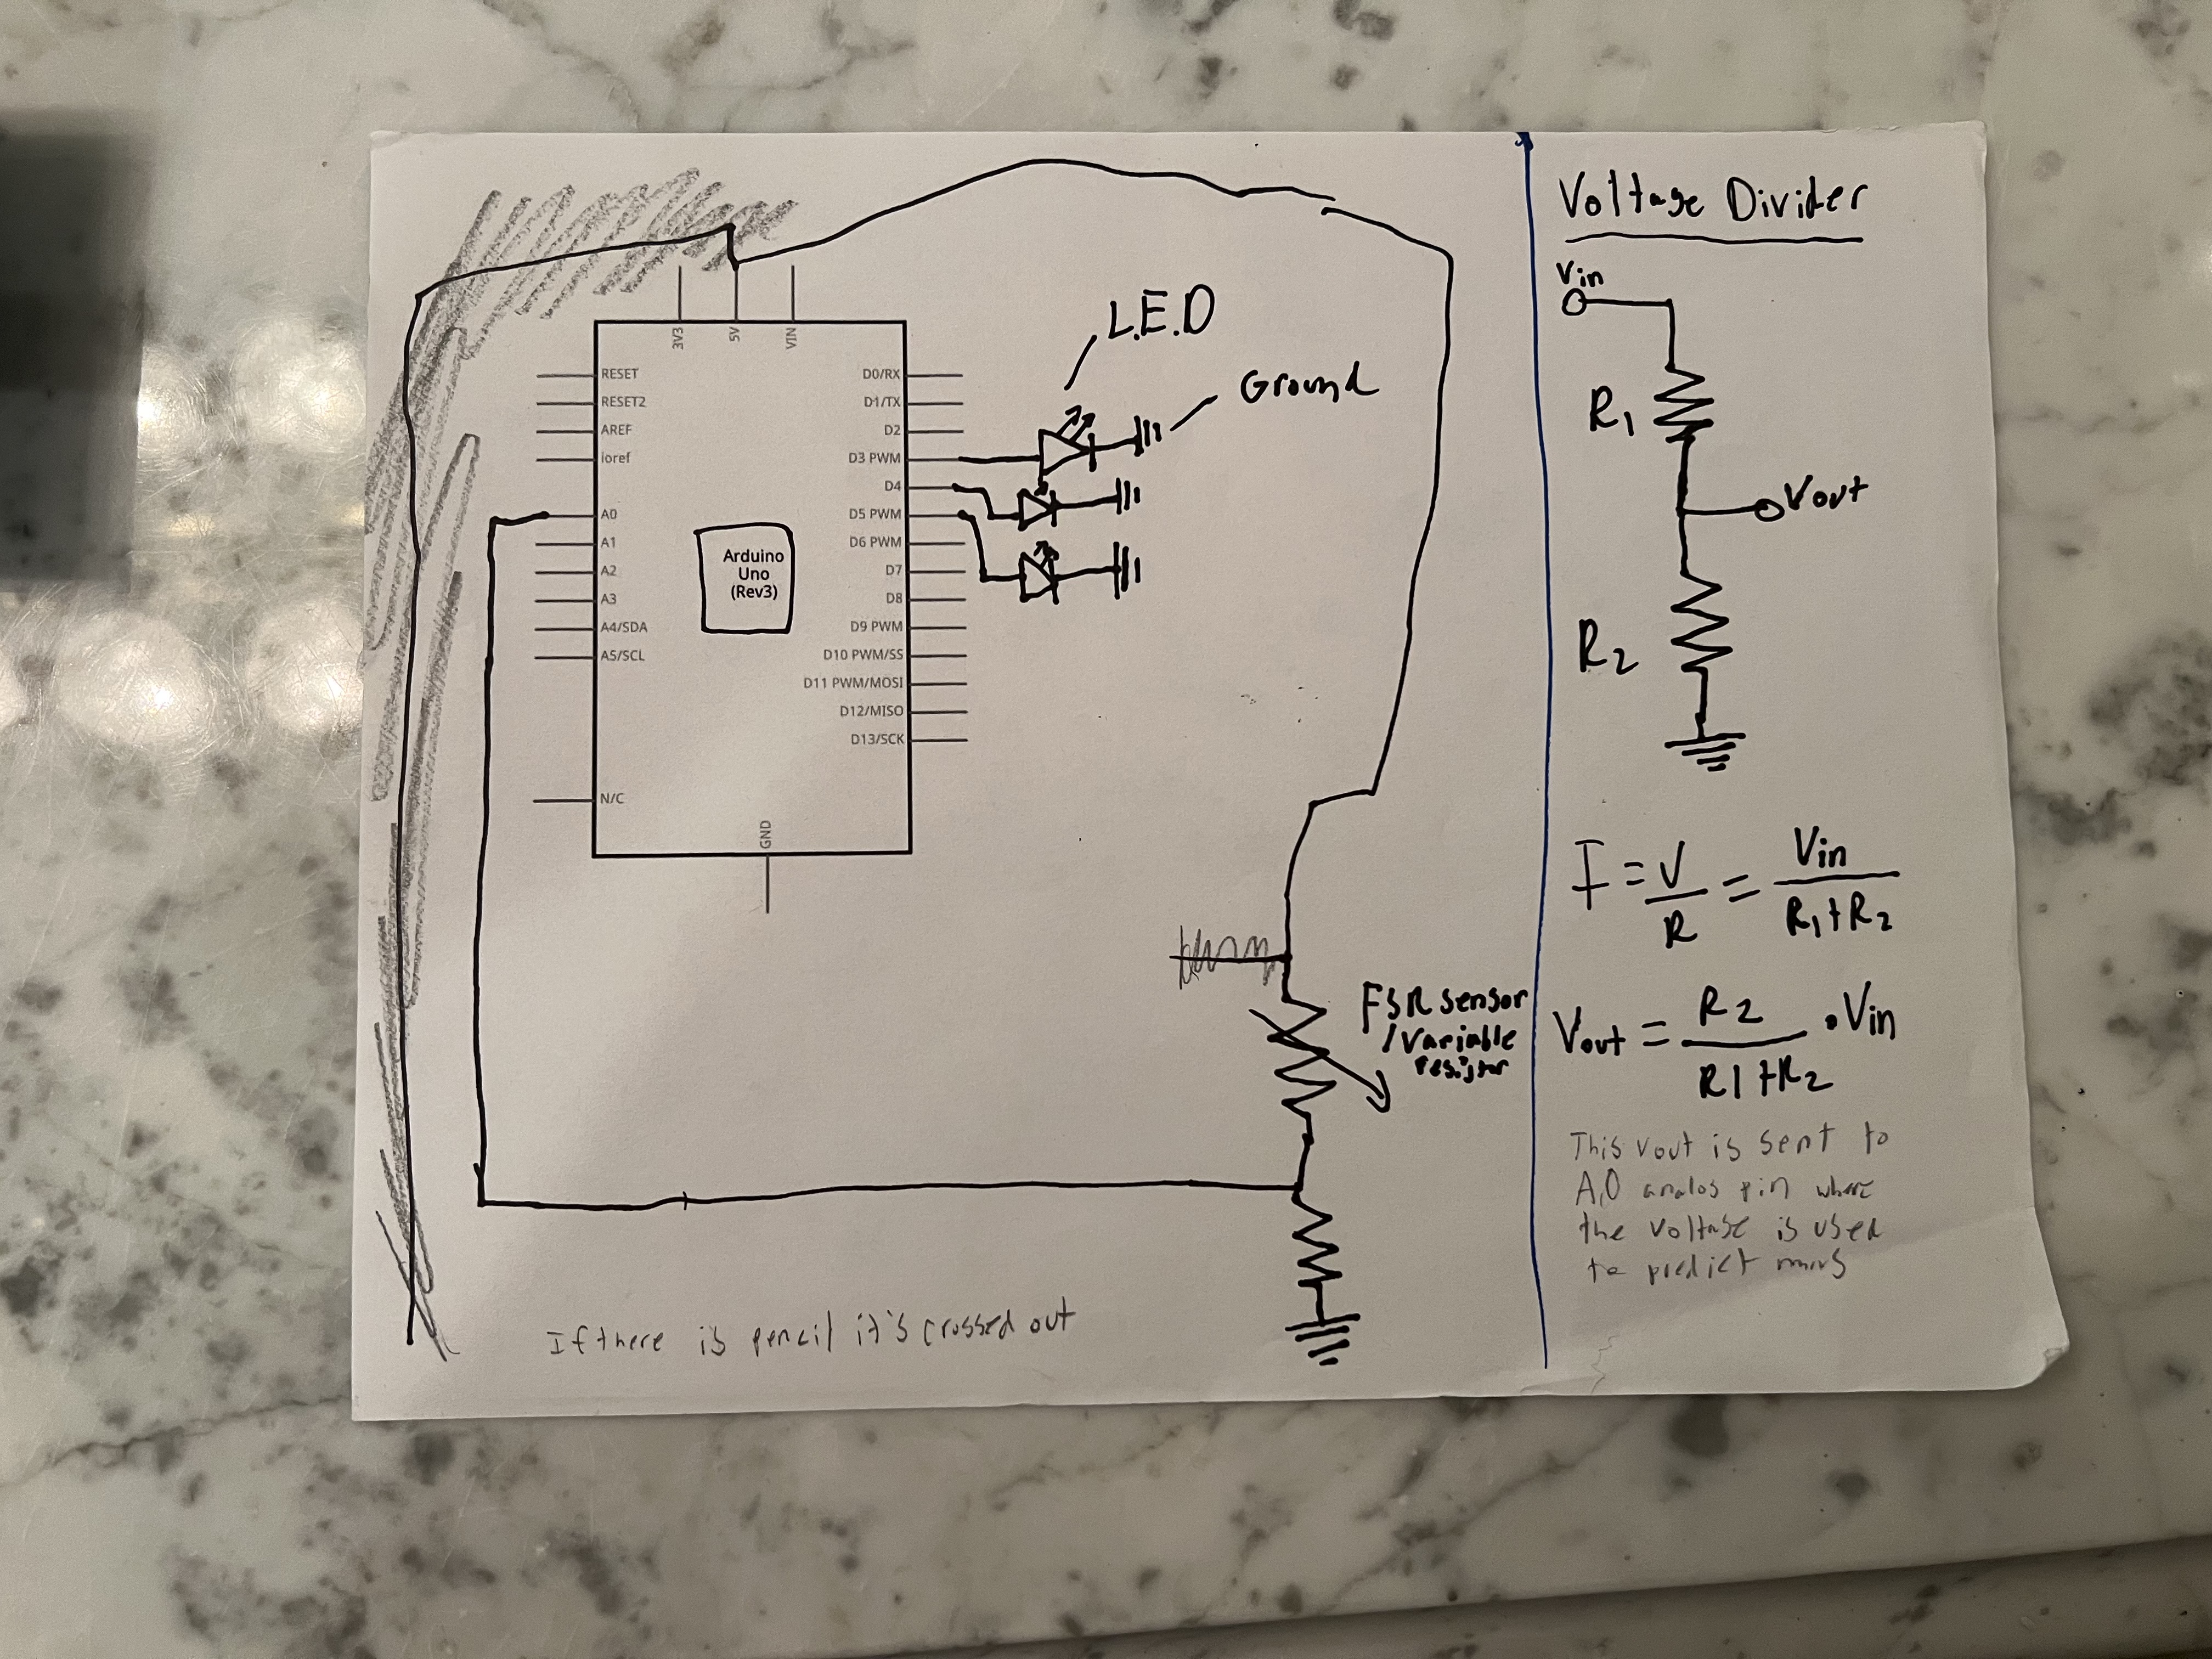 RESET
RESET2
AREF
ioref
A0
A1
A2
A3
A4/SDA
A5/SCL
N/C
3V3
5V
VIN
Arduino
Uno
(Rev3)
GND
D0/RX
D1/TX
D2
D3 PWM
D4
D5 PWM
D6 PWM
D7
D8
D9 PWM
D10 PWM/SS
D11 PWM/MOSI
D12/MISO
D13/SCK
L.E.D
Ground
FSR sensor
/Variable
resistor
If there is pencil it's crossed out
Voltage Divider
Vin
R1
Vout
R2
I = V/R = Vin/R1+R2
Vout = R2/R1+R2 • Vin
This vout is sent to
A,0 analog pin where
the voltage is used
to predict